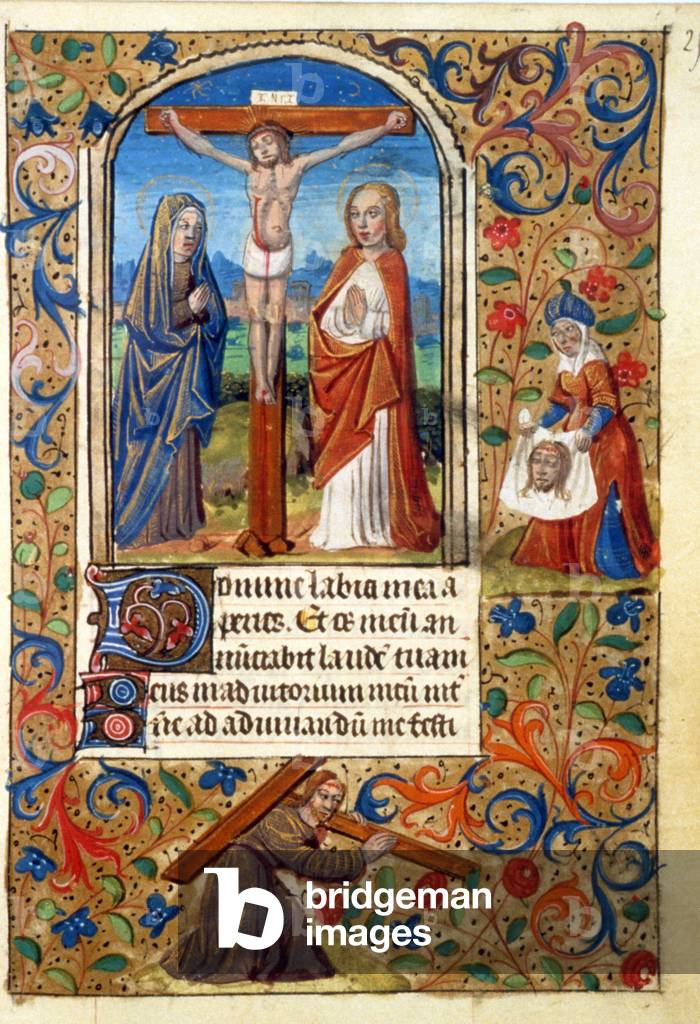 2
INRI
Domine labia mea a
peries. Et os meū an
nūciabit laudē tuam
Deus in adiutorium meū intē
dñe ad adiuuandū me festi
b bridgeman
images